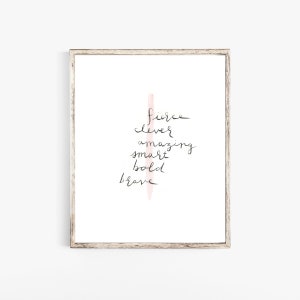 fierce
clever
amazing
smart
bold
brave